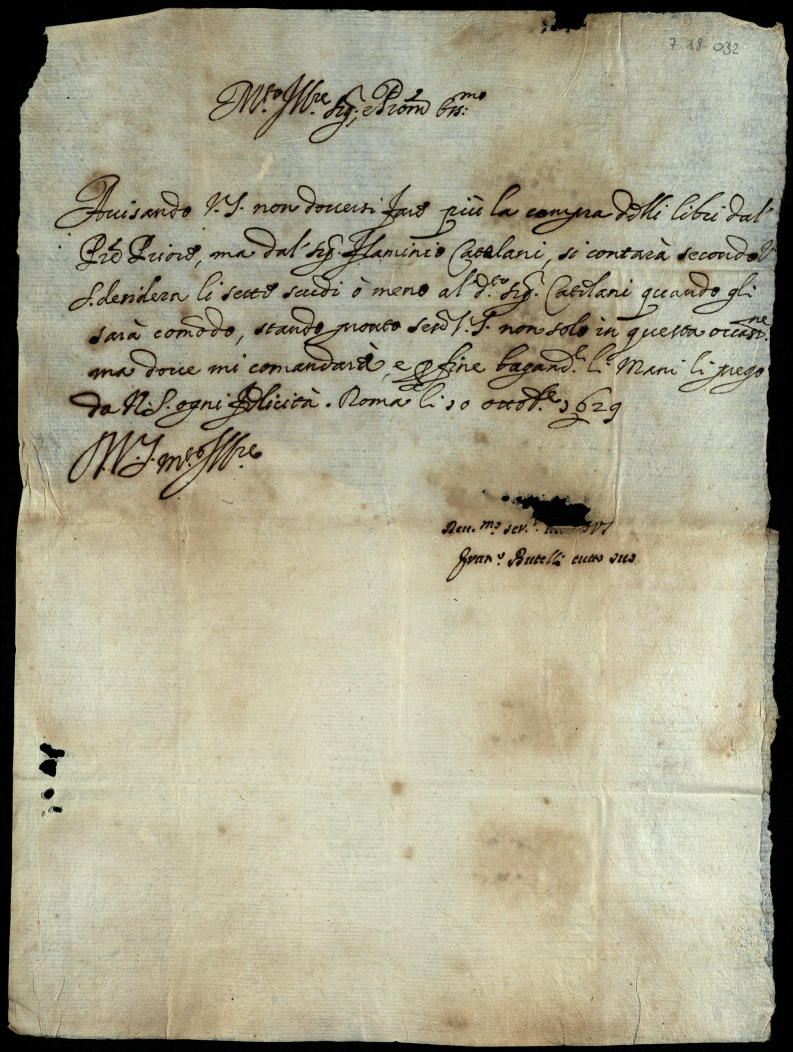 7 18-032
M.to Ill.re Sig.r e Pron
Auisando V.S. non douersi fare più la compra delli libri dal
Pre Priore, ma dal Sig. Flaminio Catelani, si contarà secondo V
S. desidera li sette scudi ò meno al d.to Sig. Catelani quando gli
sarà comodo, stando pronto V.S. non solo in questa occas.ne
ma doue mi comandarà, e p fine bagand.li le Mani li prego
da N.S. ogni felicità. Roma li 10 ottob.e 1629
D.V.S. m.to Ill.re
Deu.mo ser.
Fran.o Butelli tutto suo